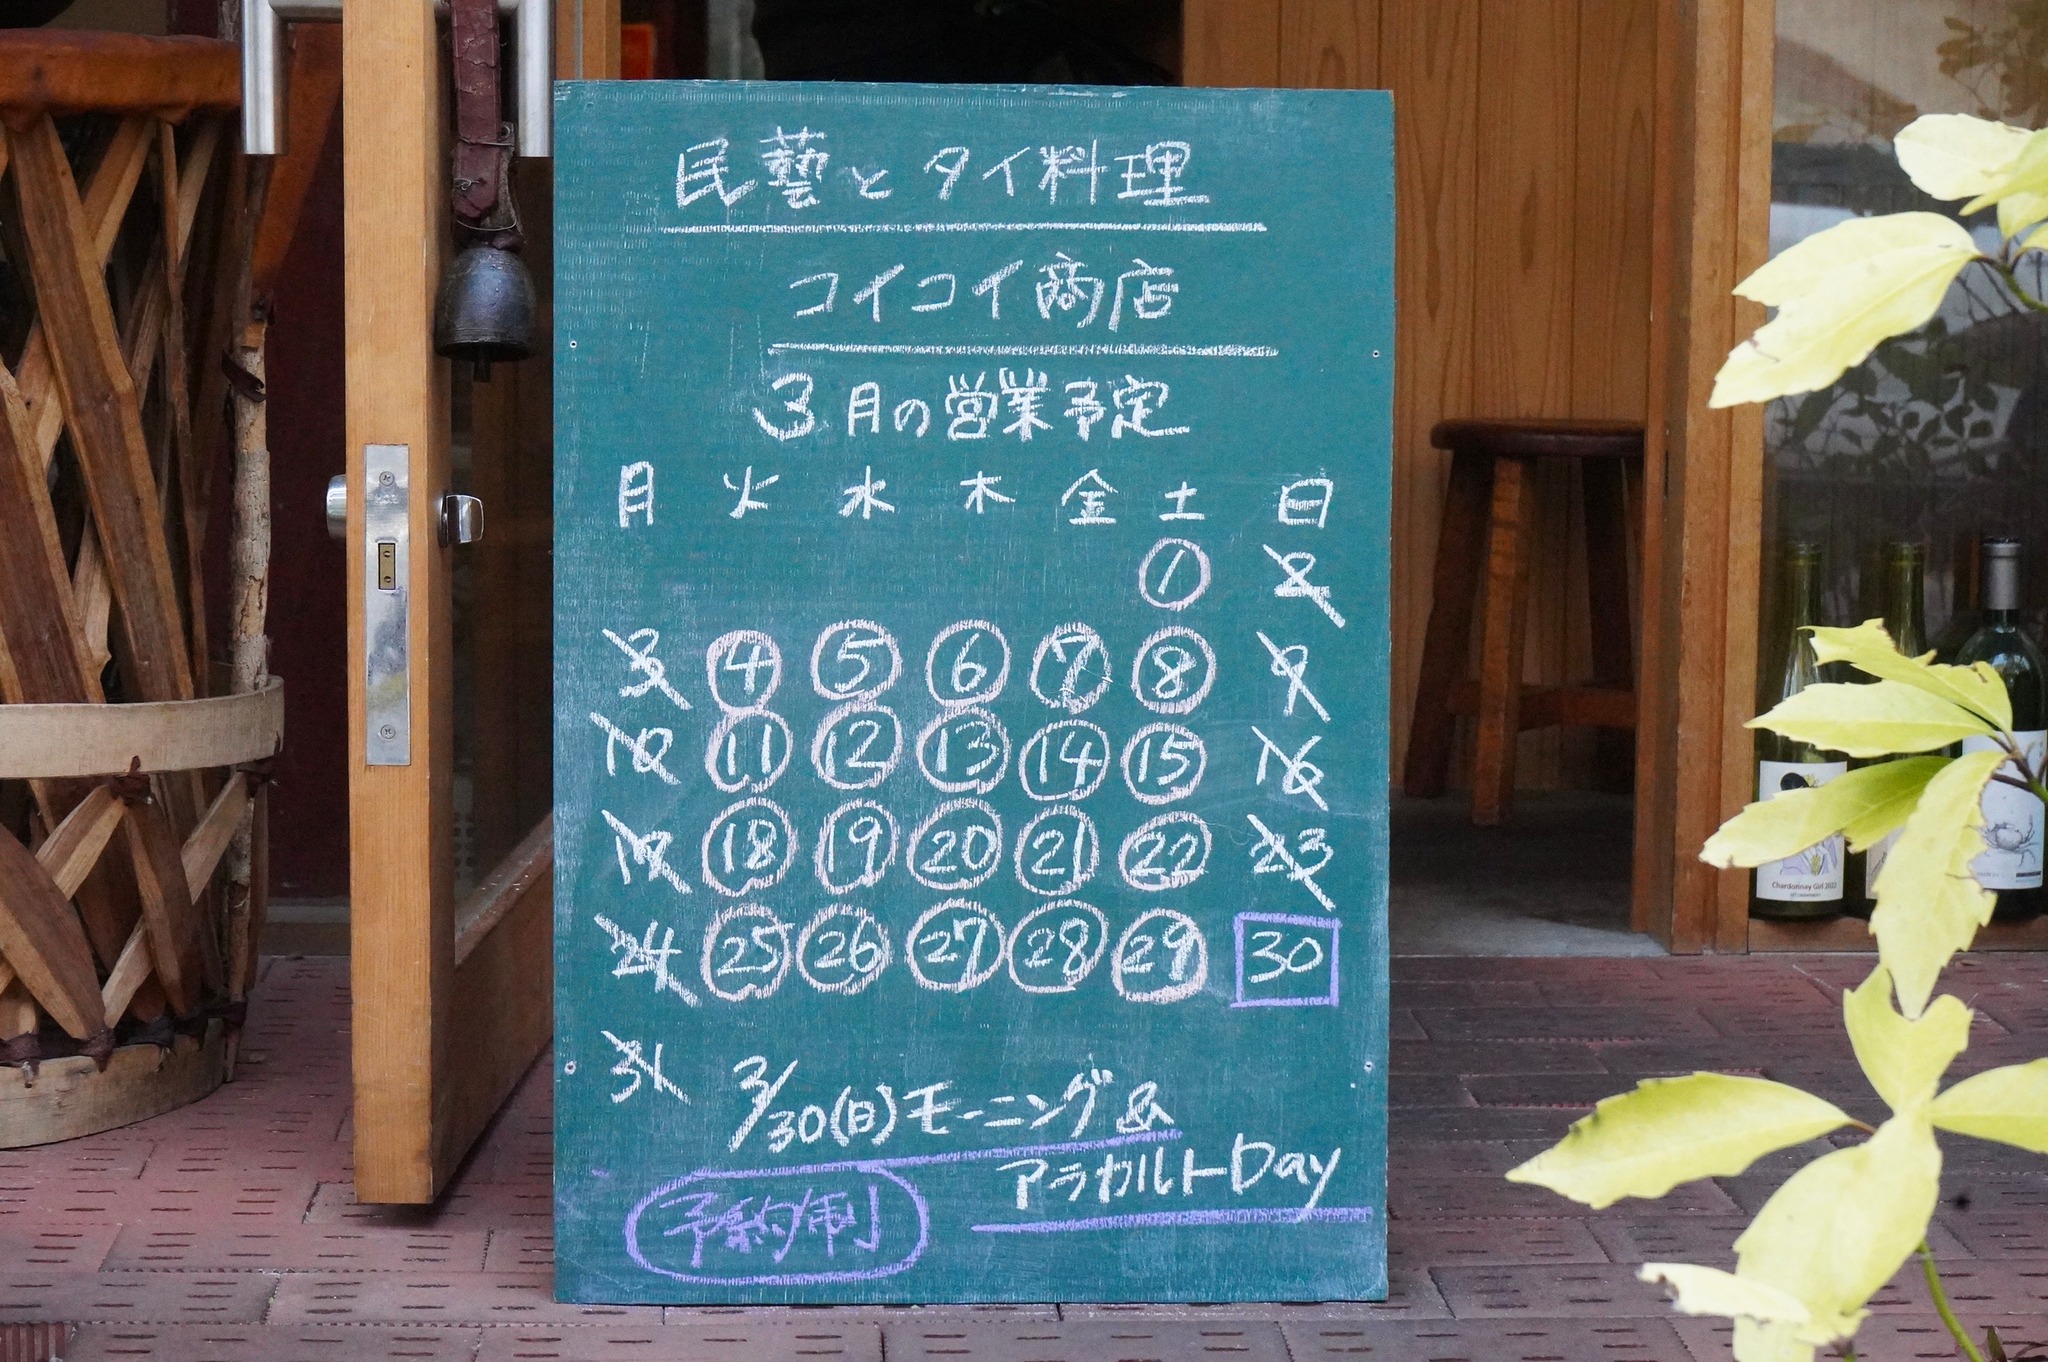 民藝とタイ料理
コイコイ商店
3月の営業予定
月 火 水 木 金 土 日
1 2
3 4 5 6 7 8 9
10 11 12 13 14 15 16
18 19 20 21 22 23
24 25 26 27 28 29 30
31
3/30(日)モーニング&
アラカルトDay
予約制
Chardonnay Girl 2022